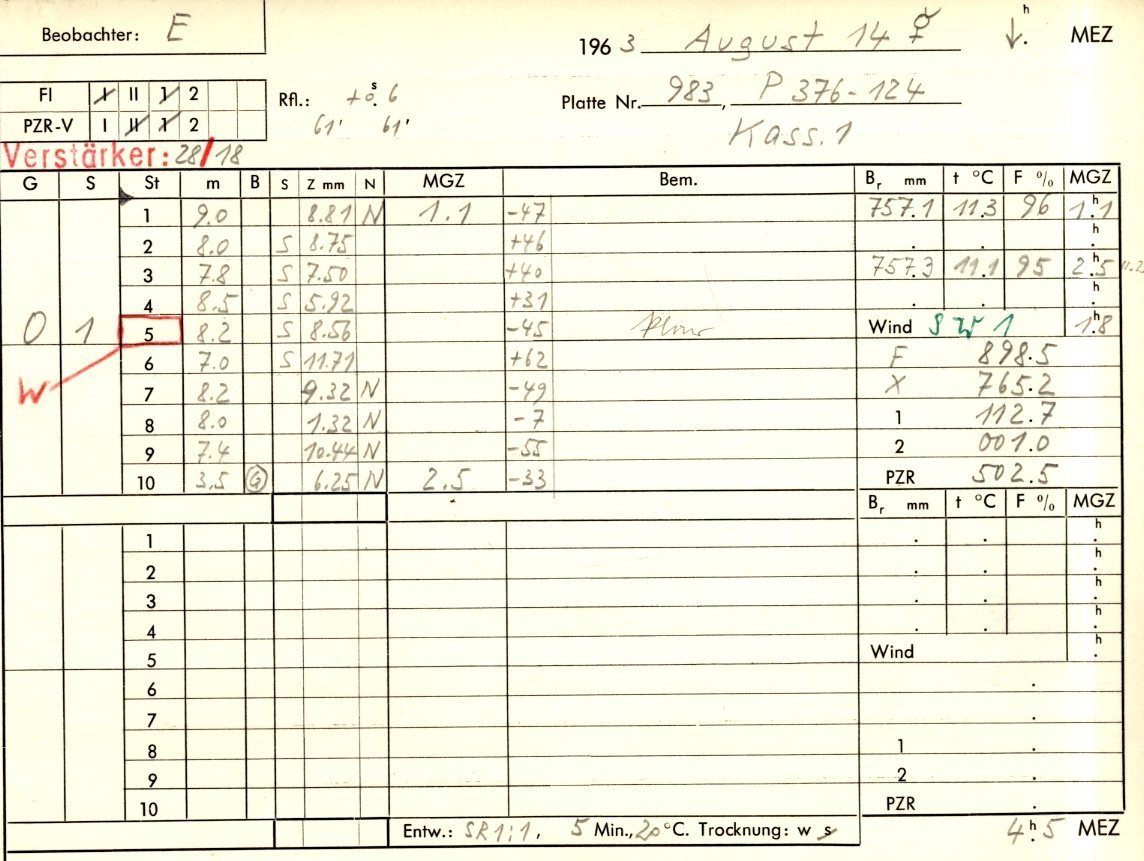 Beobachter: E
1963 August 14 ☿ ↓. h MEZ
FI I II 1 2
Rfl.: +0ˢ.6
Platte Nr. 983, P 376-124
PZR-V I II 1 2
61' 61'
Kass. 1
Verstärker: 28/18
G S St m B S Z mm N MGZ Bem. Br mm t °C F % MGZ
1 9.0 8.81 N 1.1 -47 757.1 11.3 96 1.1 h
2 8.0 S 8.75 +46 . . . h
3 7.8 S 7.50 +40 757.3 11.1 95 2.5 h
4 8.5 S 5.92 +31 . . . h
0 1 5 8.2 S 8.56 -45 Wind SW 1 1.8 h
6 7.0 S 11.71 +62 F 898.5
W 7 8.2 9.32 N -49 X 765.2
8 8.0 1.32 N -7 1 112.7
9 7.4 10.44 N -55 2 001.0
10 3.5 G 6.25 N 2.5 -33 PZR 502.5
Br mm t °C F % MGZ
1 . . . h
2 . . . h
3 . . . h
4 . . . h
5 Wind . h
6 .
7 .
8 1 .
9 2 .
10 PZR .
Entw.: SR 1:1, 5 Min., 20 °C. Trocknung: w s 4 h. 5 MEZ